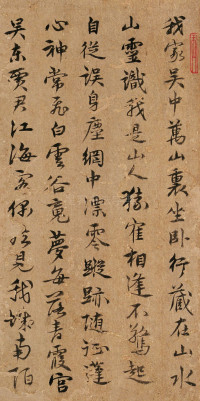 我家吳中萬山裏坐卧行藏在山水
山靈識我是山人猿寉相逢不驚起
自從誤身塵網中漂零蹤跡隨征蓬
心神常飛白雲谷夢每落青霞宮
吳東賈君江海客偶見我城南陌